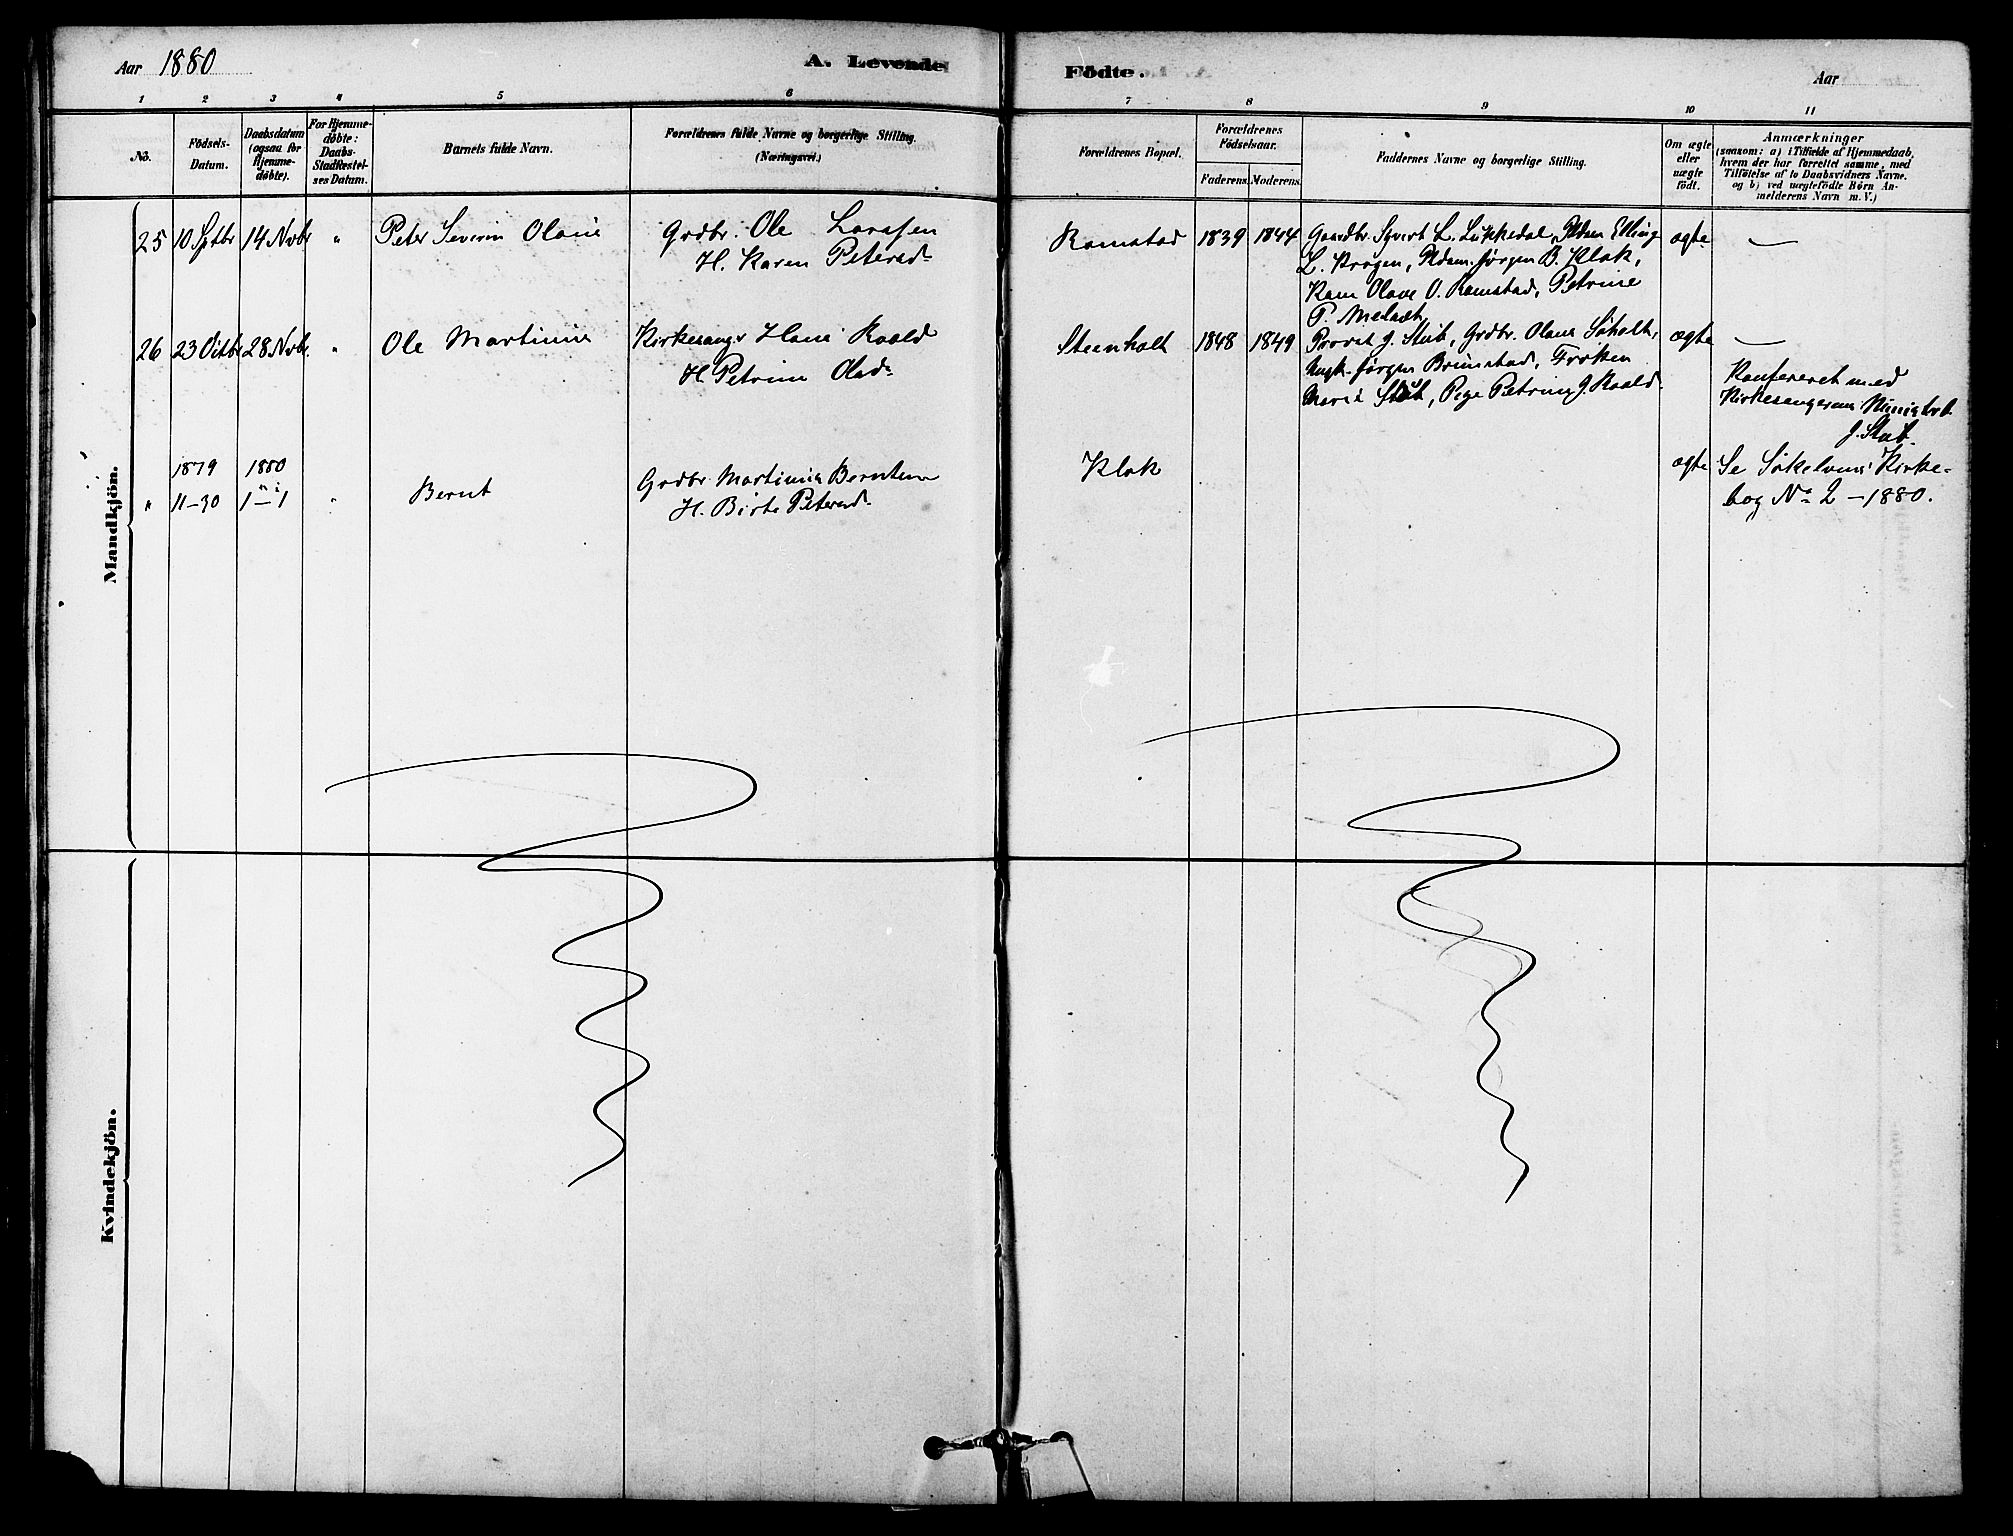 Aar 1880
A. Levende
Födte.
Aar
1 2 3 4 5 6 7 8 9 10 11
No.
Födsels-
Datum.
Daabsdatum
(ogsaa for
Hjemme-
döbte).
For Hjemme-
döbte:
Daabs-
Stadfæstel-
ses Datum.
Barnets fulde Navn.
Forældrenes fulde Navne og borgerlige Stilling.
(Næringsvei.)
Forældrenes Bopæl.
Forældrenes
Födselsaar.
Faderens. Moderens.
Faddernes Navne og borgerlige Stilling.
Om ægte
eller
uægte
födt.
Anmærkninger
(saasom: a) i Tilfælde af Hjemmedaab,
hvem der har forrettet samme, med
Tilföielse af to Daabsvidners Navne.
og b) ved uægtefödte Börn An-
melderens Navn m. V.)
Mandkjön.
25 10 Sptbr 14 Nvbr " Peter Severin Olaus
Grdbr. Ole Larssen
H. Karen Petersd.
Ramstad 1839 1844
Gaardbr. Syvert L. Lükkedal, Erling
L. Krogen, Jörgen B. Klok,
Olave O. Ramstad, Petrine
P.
ægte —
26 23 Octbr 28 Nvbr. " Ole Martinus
Kirkesanger Hans Roald
H. Petrine Olsd.
Steenholt 1848 1849
Provst J. Stub, Grdbr. Olaus Söholt,
Ungk. Jörgen Brunstad, Fröken
Marie Stub, Pige Petrine J. Roald.
ægte —
Konfereret med
Kirkesangerens
J. Stub.
" 1879
11-30
1880
1-1
" Bernt
Grdbr. Martinus Berntsen
H. Birte Petersd.
Klok
ægte
Se Sökelvens Kirke-
bog No 2 - 1880.
Kvindekjön.